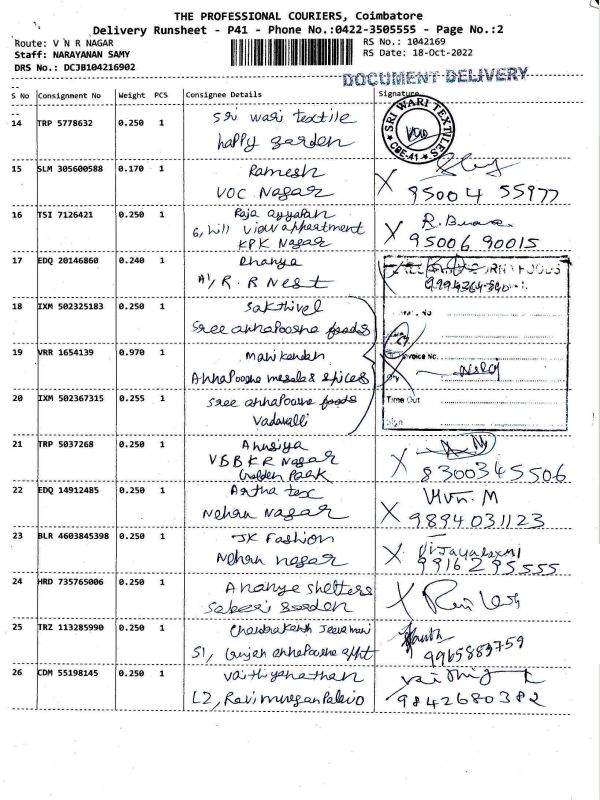 THE PROFESSIONAL COURIERS, Coimbatore
Delivery Runsheet - P41 - Phone No.:0422-3505555 - Page No.:2
Route: V N R NAGAR
Staff: NARAYANAN SAMY
DRS No.: DCJB104216902
RS No.: 1042169
RS Date: 18-Oct-2022
DOCUMENT DELIVERY
S No Consignment No Weight PCS Consignee Details Signature
14 TRP 5778632 0.250 1 Sri wari textile
happy garden
SRI WARI TEXTILES
CBE-41
15 SLM 305600588 0.170 1 Ramesh
VOC Nagar X 95004 55977
16 TSI 7126421 0.250 1 Raja ayyapan
6, hill view appartment X
KPK Nagar 95006 90015
17 EDQ 20146860 0.240 1 Dhanya
A1, R.R Nest
18 IXM 502325183 0.250 1 Sakthivel
Sree annapoorna foods
19 VRR 1654139 0.970 1 Manikandan
Annapoorna masala & spices
Invoice No.
Qty
20 IXM 502367315 0.255 1 Sree annapoorna foods
Vadavalli
Time Out
Sign
21 TRP 5037268 0.250 1 Anusiya
VBBKR Nagar
Golden Park X 8300345506
22 EDQ 14912485 0.250 1 Artha tex
Nehru Nagar X 9894031123
23 BLR 4603845398 0.250 1 JK Fashion
Nehru nagar X Vijayalaxmi
9916295555
24 HRD 735765006 0.250 1 Ananya shelters
Sabari garden X
25 TRZ 113285990 0.250 1 Chandrakanth Jeeramani
S1, annapoorna appt 9965883759
26 CDM 55198145 0.250 1 Vaithiyanathan
L2, Ravi murugan Palavio 9842680382